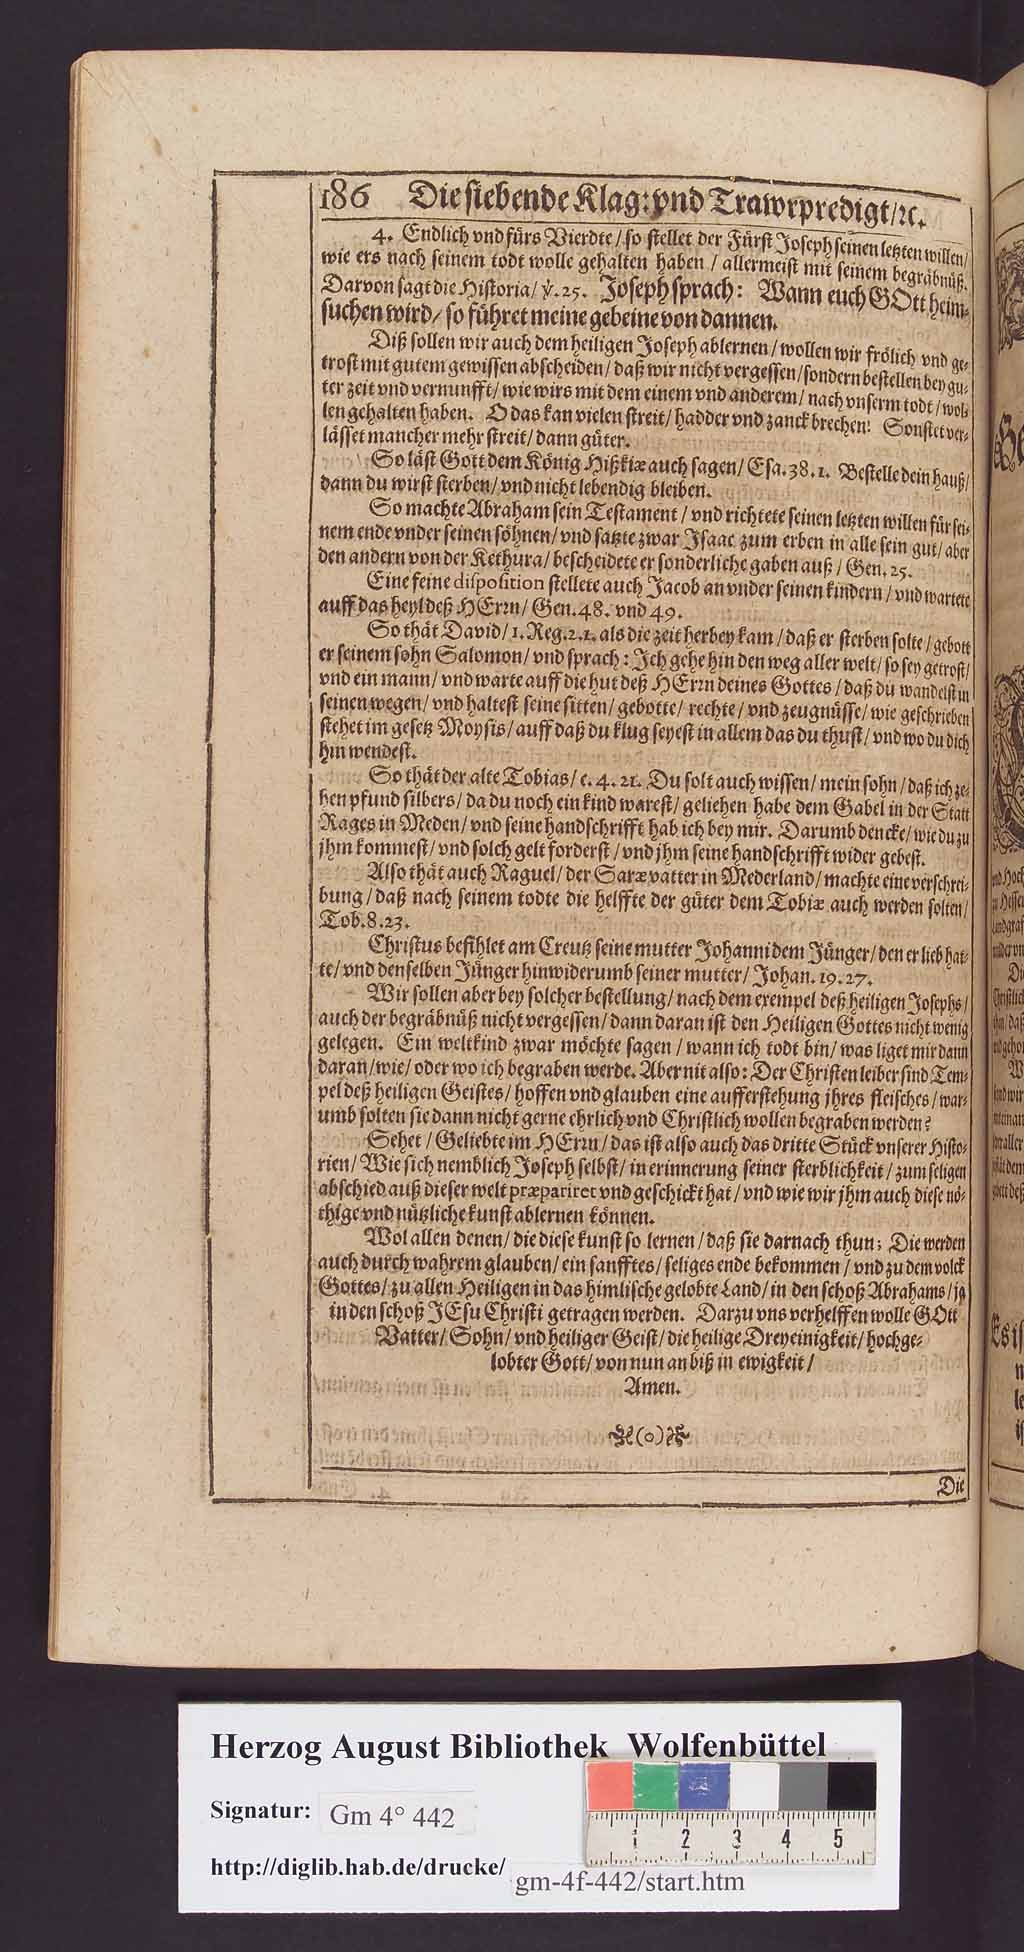 186 Die siebende Klag: vnd Trawrpredigt/ꝛc.
4. Endlich vnd fürs Vierdte / so stellet der Fürst Joseph seinen letzten willen/
wie ers nach seinem todt wolle gehalten haben / allermeist mit seinem begräbnüß.
Darvon sagt die Historia/ ꝟ. 25. Joseph sprach: Wann euch GOtt heim-
suchen wird/ so führet meine gebeine von dannen.
Diß sollen wir auch dem heiligen Joseph ablernen/ wollen wir frölich vnd ge-
trost mit gutem gewissen abscheiden/ daß wir nicht vergessen/ sondern bestellen bey gu-
ter zeit vnd vernunfft/ wie wirs mit dem einem vnd anderem/ nach vnserm todt/ wol-
len gehalten haben. O das kan vielen streit/ hadder vnd zanck brechen! Sonstet ver-
lässet mancher mehr streit/ dann güter.
So läst Gott dem König Hißkiæ auch sagen/ Esa. 38. 1. Bestelle dein hauß/
dann du wirst sterben/ vnd nicht lebendig bleiben.
So machte Abraham sein Testament / vnd richtete seinen letzten willen für sei-
nem ende vnder seinen söhnen/ vnd satzte zwar Isaac zum erben in alle sein gut/ aber
den andern von der Kethura/ bescheidete er sonderliche gaben auß/ Gen. 25.
Eine feine disposition stellete auch Jacob an vnder seinen kindern / vnd wartete
auff das heyl deß HErrn/ Gen. 48. vnd 49.
So thät David/ 1. Reg. 2. 1. als die zeit herbey kam/ daß er sterben solte/ gebott
er seinem sohn Salomon/ vnd sprach: Ich gehe hin den weg aller welt/ so sey getrost/
vnd ein mann/ vnd warte auff die hut deß HErrn deines Gottes/ daß du wandelst in
seinen wegen/ vnd haltest seine sitten/ gebotte/ rechte/ vnd zeugnüsse/ wie geschrieben
stehet im gesetz Moysis/ auff daß du klug seyest in allem das du thust/ vnd wo du dich
hin wendest.
So thät der alte Tobias/ c. 4. 21. Du solt auch wissen/ mein sohn/ daß ich ze-
hen pfund silbers/ da du noch ein kind warest/ geliehen habe dem Gabel in der Statt
Rages in Meden/ vnd seine handschrifft hab ich bey mir. Darumb dencke/ wie du zu
jhm kommest/ vnd solch gelt forderst/ vnd jhm seine handschrifft wider gebest.
Also thät auch Raguel/ der Saræ vatter in Mederland/ machte eine verschrei-
bung/ daß nach seinem todte die helffte der güter dem Tobiæ auch werden solten/
Tob. 8. 23.
Christus befihlet am Creutz seine mutter Johanni dem Jünger/ den er lieb hat-
te/ vnd denselben Jünger hinwiderumb seiner mutter/ Johan. 19. 27.
Wir sollen aber bey solcher bestellung/ nach dem exempel deß heiligen Josephs/
auch der begräbnüß nicht vergessen/ dann daran ist den Heiligen Gottes nicht wenig
gelegen. Ein weltkind zwar möchte sagen / wann ich todt bin/ was liget mir dann
daran/ wie/ oder wo ich begraben werde. Aber nit also: Der Christen leiber sind Tem-
pel deß heiligen Geistes/ hoffen vnd glauben eine aufferstehung jhres fleisches/ war-
umb solten sie dann nicht gerne ehrlich vnd Christlich wollen begraben werden?
Sehet / Geliebte im HErrn / das ist also auch das dritte Stück vnserer Histo-
rien/ Wie sich nemblich Joseph selbst/ in erinnerung seiner sterblichkeit / zum seligen
abschied auß dieser welt præpariret vnd geschickt hat/ vnd wie wir jhm auch diese nö-
thige vnd nützliche kunst ablernen können.
Wol allen denen/ die diese kunst so lernen/ daß sie darnach thun: Die werden
auch durch wahrem glauben/ ein sanfftes/ seliges ende bekommen / vnd zu dem volck
Gottes/ zu allen Heiligen in das himlische gelobte Land/ in den schoß Abrahams/ ja
in den schoß JEsu Christi getragen werden. Darzu vns verhelffen wolle GOtt
Vatter/ Sohn/ vnd heiliger Geist/ die heilige Dreyeinigkeit/ hochge-
lobter Gott/ von nun an biß in ewigkeit/
Amen.
(o)
Die
Herzog August Bibliothek Wolfenbüttel
Signatur: Gm 4° 442
http://diglib.hab.de/drucke/ gm-4f-442/start.htm
1 2 3 4 5